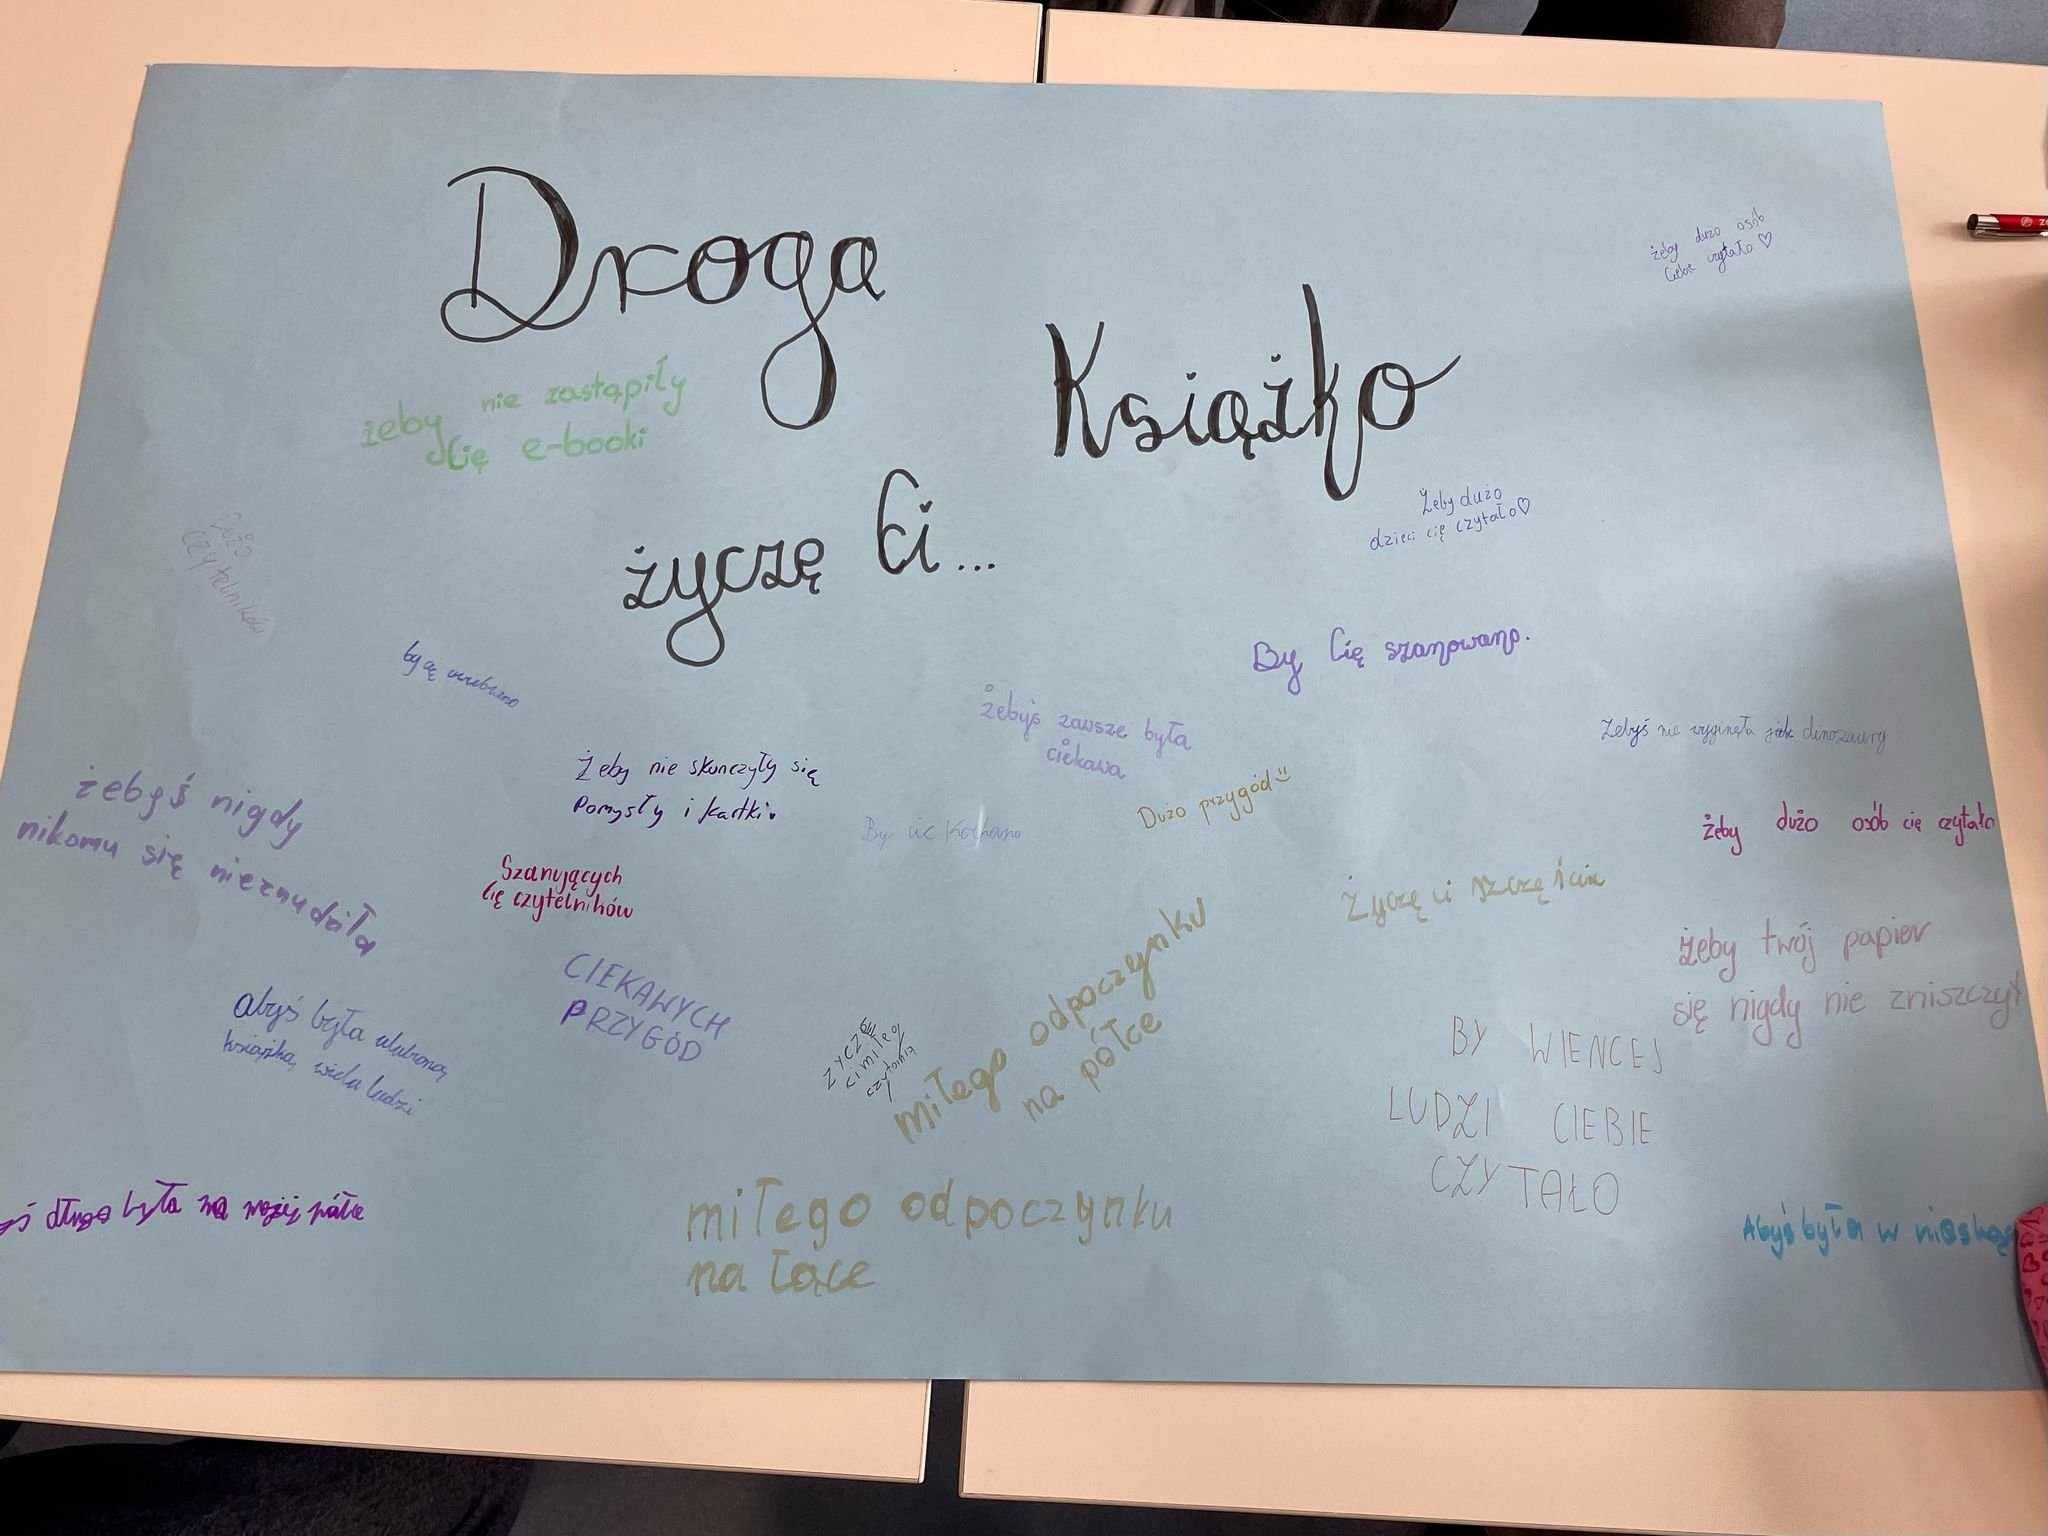 Droga
Książko
życzę Ci...
żeby dużo osób
Ciebie czytało ♡
żeby nie zastąpiły
Cię e-booki
Żeby dużo
dzieci cię czytało ♡
Dużo
czytelników
By Cię szanowano.
by cię
żebyś zawsze była
ciekawa
Żebyś nie wyginęła jak dinozaury
Żeby nie skunczyły się
Pomysły i kartki
żebyś nigdy
nikomu się nieznudziła
Dużo przygód
By cię Kochano
żeby dużo osób cię czytało
Szanujących
Cię czytelników
Życzę ci szczęścia
żeby twój papier
się nigdy nie zniszczył
CIEKAWYCH
PRZYGÓD
abyś była ulubioną
książką wielu ludzi
ŻYCZĘ
Ci miłego
czytania
miłego odpoczynku
na półce
BY WIENCEJ
LUDZI CIEBIE
CZYTAŁO
długo była na mojej półce
miłego odpoczynku
na łące
Abyś była w